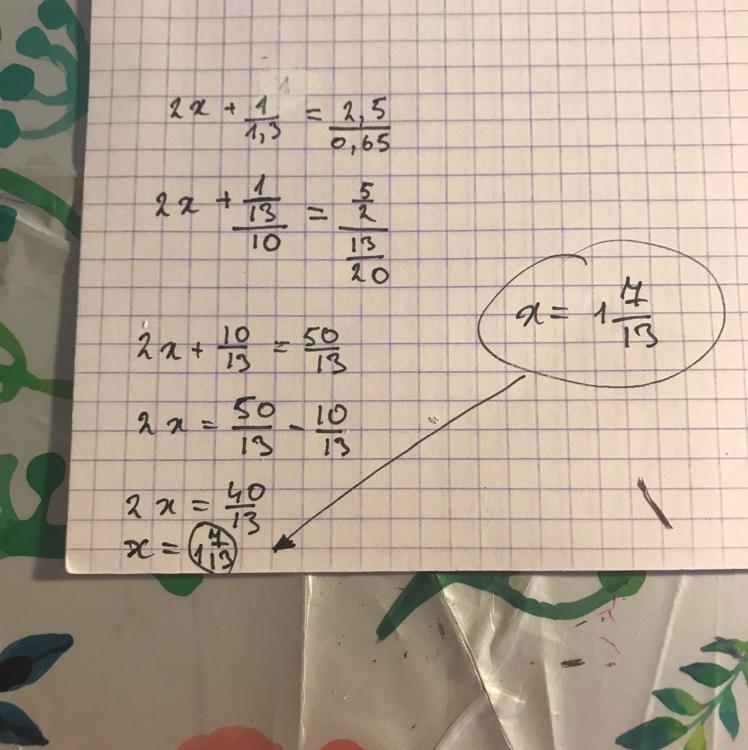 2x + 1/1,3 = 2,5/0,65
2x + 1/(13/10) = (5/2)/(13/20)
2x + 10/13 = 50/13
2x = 50/13 - 10/13
2x = 40/13
x = 1 7/13
x = 1 7/13